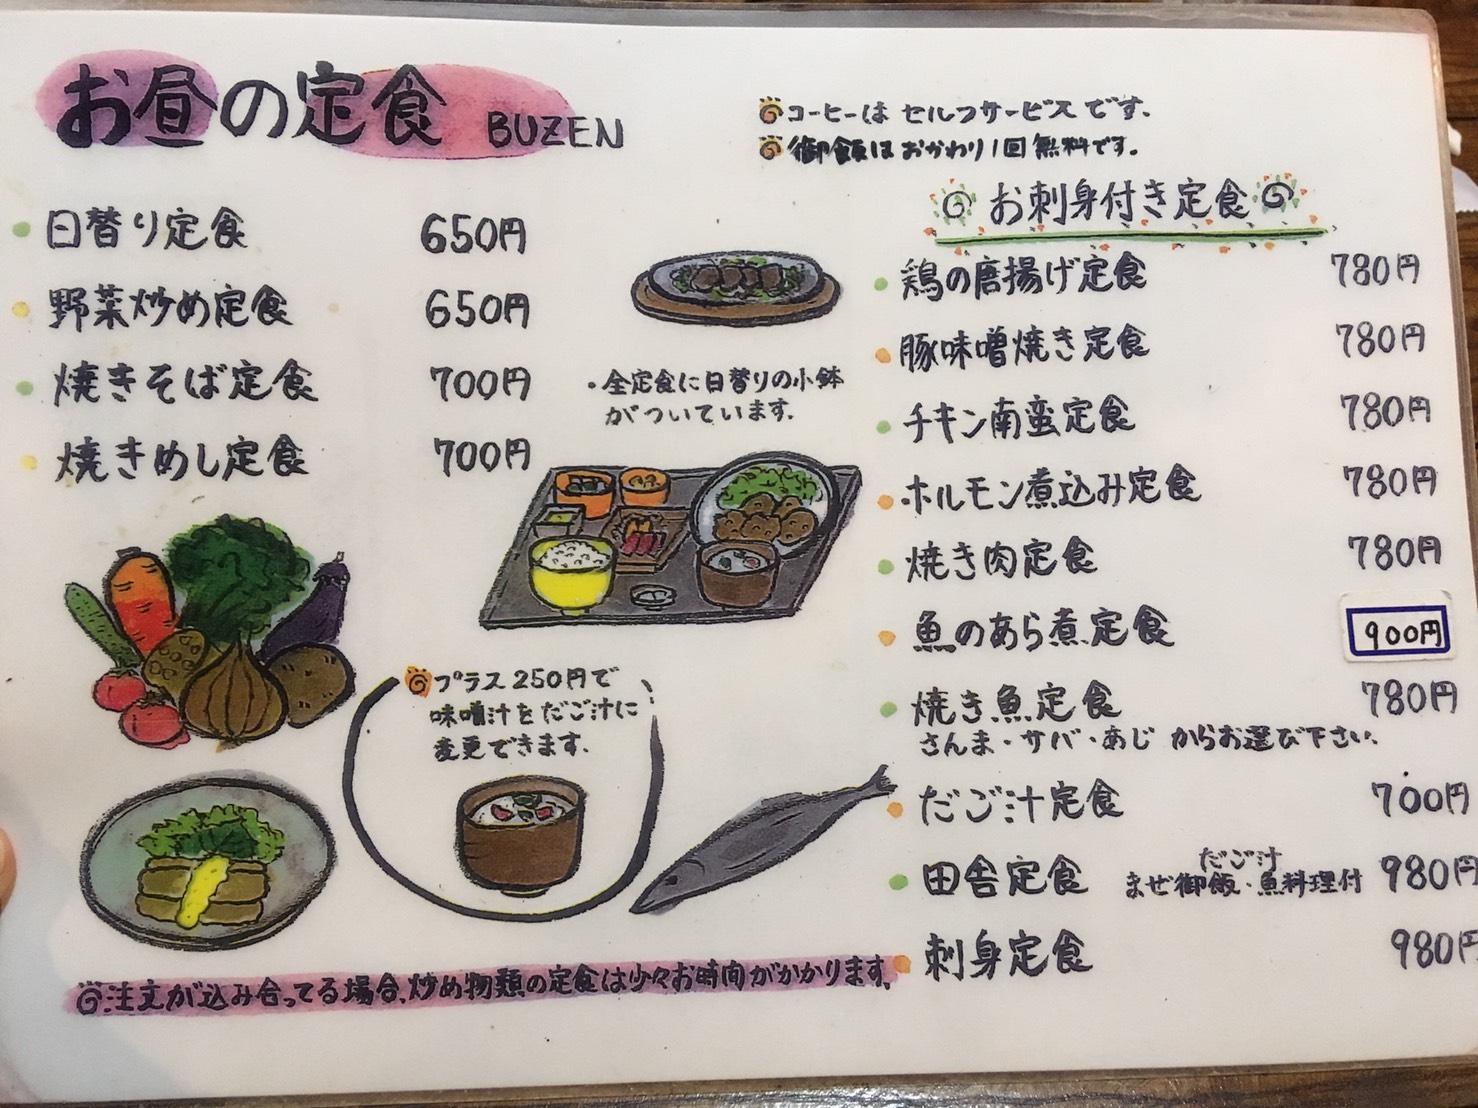 お昼の定食 BUZEN
コーヒーは セルフサービスです.
御飯はおかわり1回無料です。
日替り定食 650円
野菜炒め定食 650円
焼きそば定食 700円
焼きめし定食 700円
・全定食に日替りの小鉢
がついています.
プラス250円で
味噌汁をだご汁に
変更できます.
お刺身付き定食
鶏の唐揚げ定食 780円
豚味噌焼き定食 780円
チキン南蛮定食 780円
ホルモン煮込み定食 780円
焼き肉定食 780円
魚のあら煮定食 900円
焼き魚定食 780円
さんま・サバ・あじ からお選び下さい.
だご汁定食 700円
だご汁
田舎定食 まぜ御飯・魚料理付 980円
刺身定食 980円
注文が込み合ってる場合、炒め物類の定食は少々お時間がかかります.